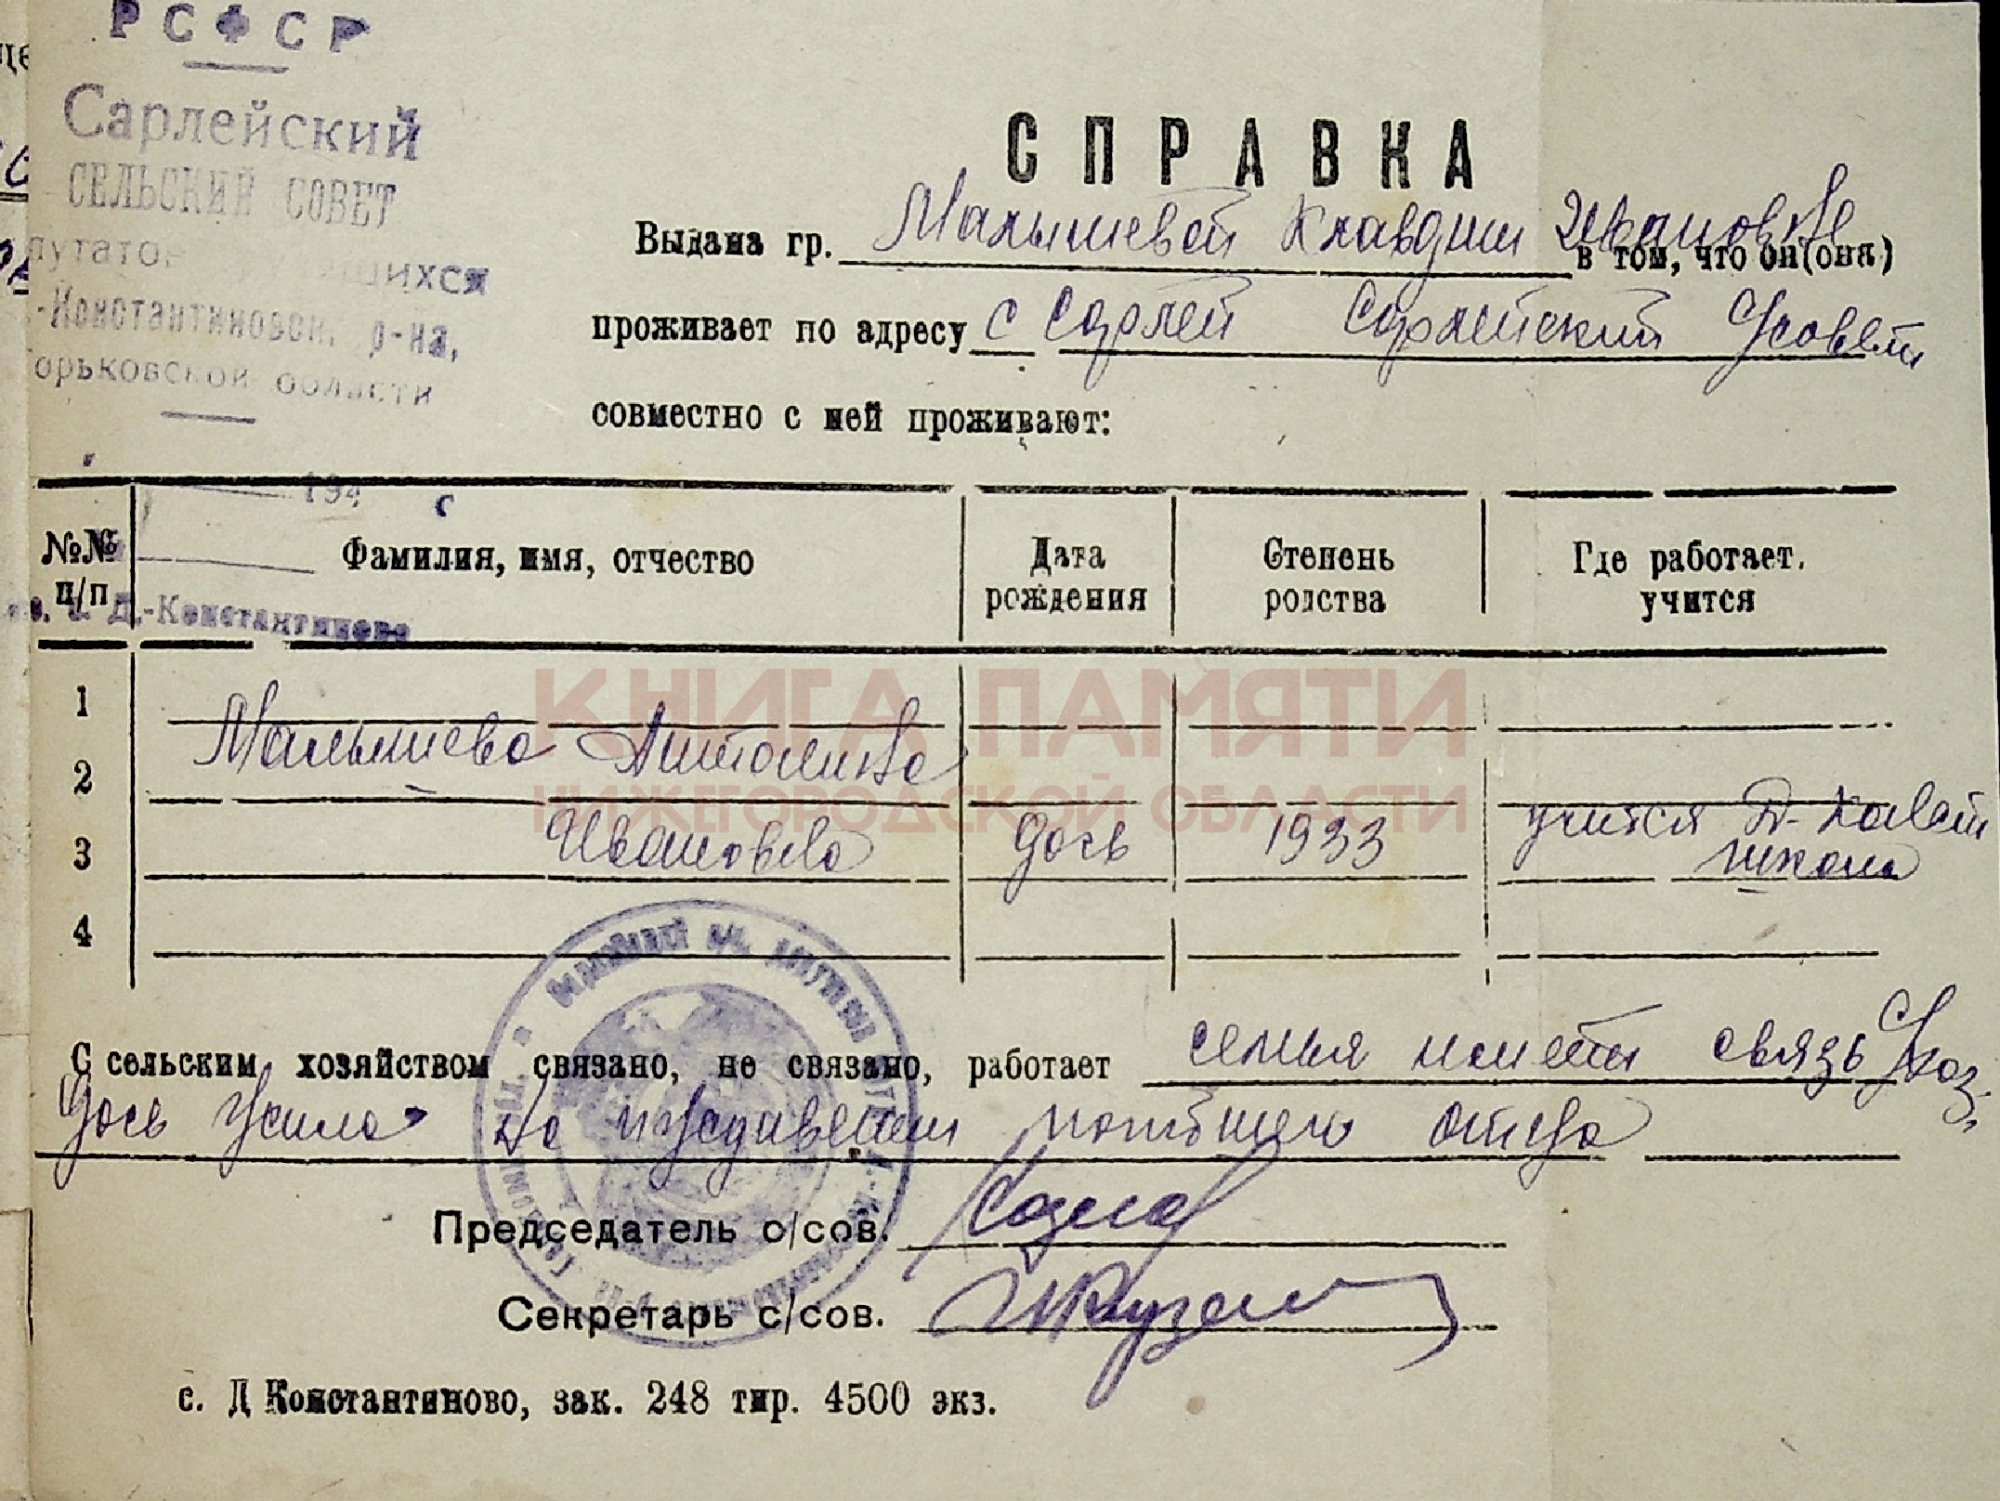 РСФСР
Сарлейский
СЕЛЬСКИЙ СОВЕТ
путатов щихся
-Константиновск. р-на,
орьковской области
194 г
с. Д.-Константиново
СПРАВКА
Выдана гр. Малышевой Клавдии Ивановне в том, что он(она)
проживает по адресу с Сарлей Сарлейский
совместно с ней проживают:
№№ п/п Фамилия, имя, отчество Дата рождения Степень родства Где работает, учится
1
2 Малышева
3 Ивановна дочь 1933 учится школа
4
КНИГА ПАМЯТИ
НИЖЕГОРОДСКОЙ ОБЛАСТИ
С сельским хозяйством связано, не связано, работает семья имеет связь С/хоз.
дочь погибшего отца
Председатель с/сов.
Секретарь с/сов.
с. Д Константиново, зак. 248 тир. 4500 экз.